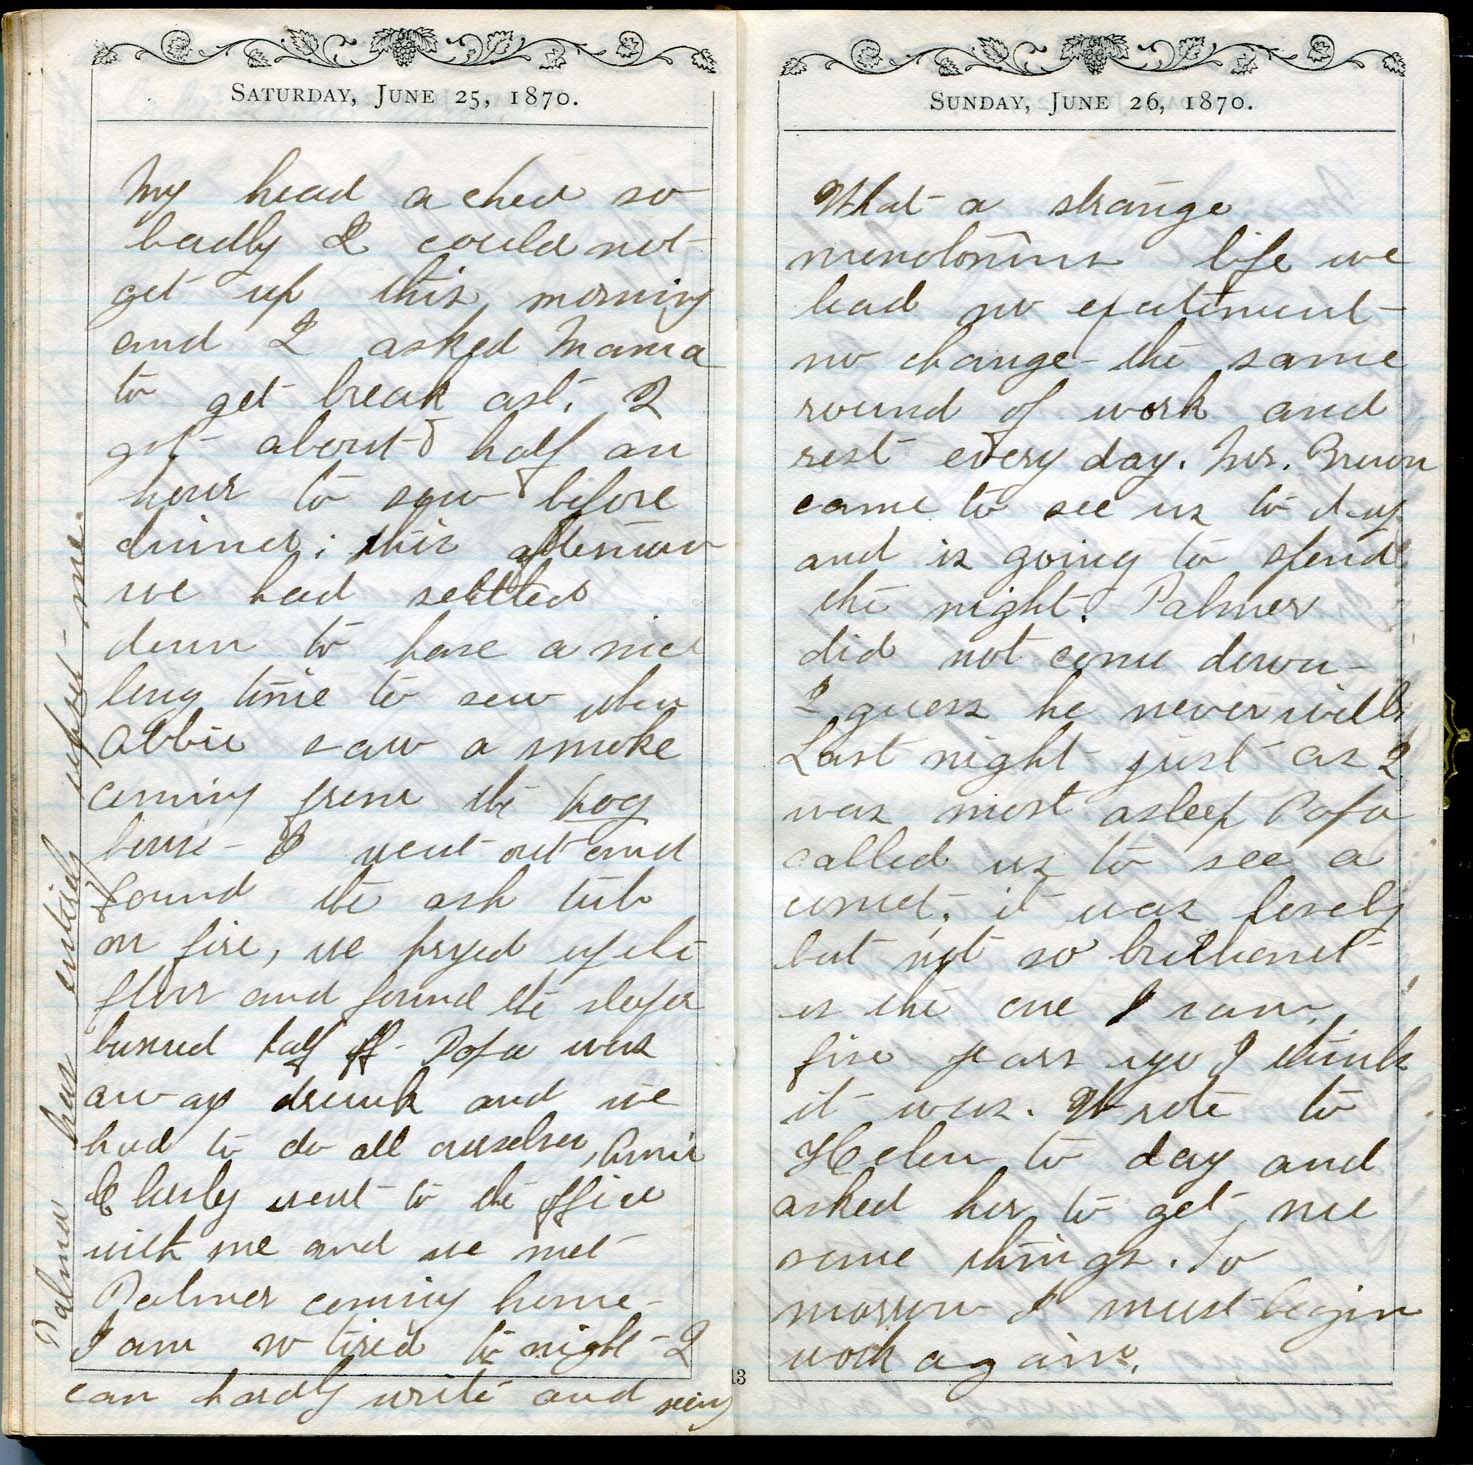 SATURDAY, JUNE 25, 1870.
My head ached so
badly I could not
get up this morning
and I asked Mama
to get break ast. I
got about half an
hour to sew before
dinner; this afternoon
we had settled
down to have a nice
long time to sew when
Abbie saw a smoke
coming from the hog
house - I went out and
found the ash tub
on fire, we pryed up the
floor and found the sleeper
burned half off - Papa was
away drunk and we
had to do all ourselves,
went to the office
with me and we met
Palmer coming home -
I am so tired to night - I
can hardly write and seeing
Palmer has entirely upset me.
SUNDAY, JUNE 26, 1870.
What a strange
monotonous life we
lead no excitement -
no change - the same
round of work and
rest every day. Mr. Brown
came to see us to day
and is going to spend
the night. Palmer
did not come down -
I guess he never will
Last night just as I
was most asleep Papa
called us to see a
comet, it was lovely
but not so brilliant
as the one I saw,
five years ago I think
it was. Wrote to
Helen to day and
asked her to get me
some things. To
morrow I must begin
work again.
13